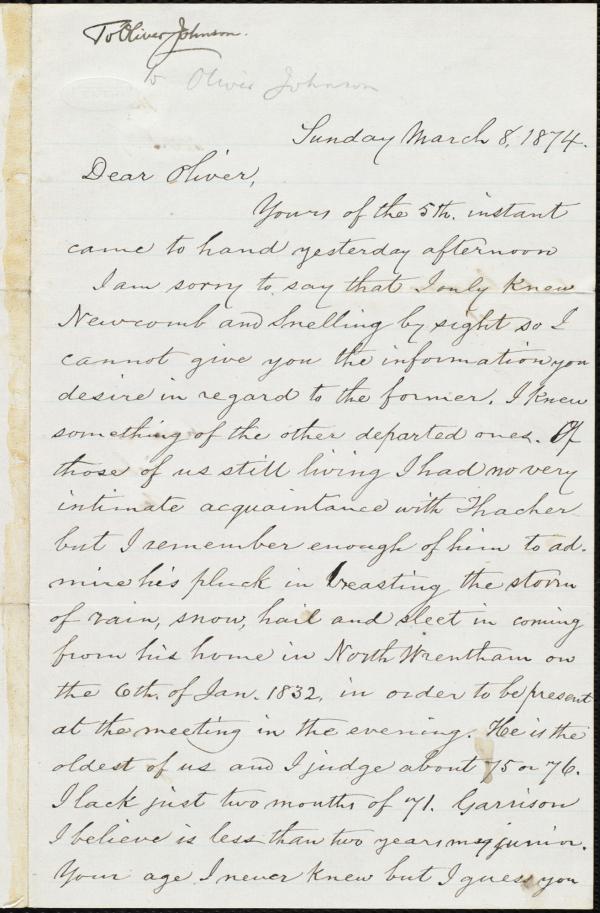 To Oliver Johnson.
to Oliver Johnson
Sunday March 8, 1874.
Dear Oliver,
Yours of the 5th. instant
came to hand yesterday afternoon
I am sorry to say that I only knew
Newcomb and Snelling by sight so I
cannot give you the information you
desire in regard to the former. I knew
something of the other departed ones. Of
those of us still living I had no very
intimate acquaintance with Thacher
but I remember enough of him to ad-
mire his pluck in breasting the storm
of rain, snow, hail and sleet in coming
from his home in North Wrentham on
the 6th. of Jan. 1832, in order to be present
at the meeting in the evening. He is the
oldest of us and I judge about 75 or 76.
I lack just two months of 71. Garrison
I believe is less than two years my junior.
Your age I never knew but I guess you